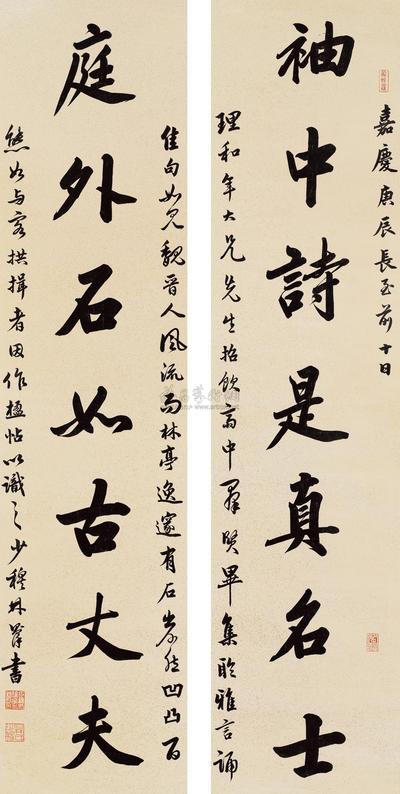 嘉慶庚辰長至前十日
袖中詩是真名士
理和年大兄先生招飲齋中群賢畢集聆雅言誦
佳句如見魏晉人風流而林亭逸邃有石出於凹凸百
庭外石如古丈夫
態如与客拱揖者因作楹帖以識之少穆林則徐書